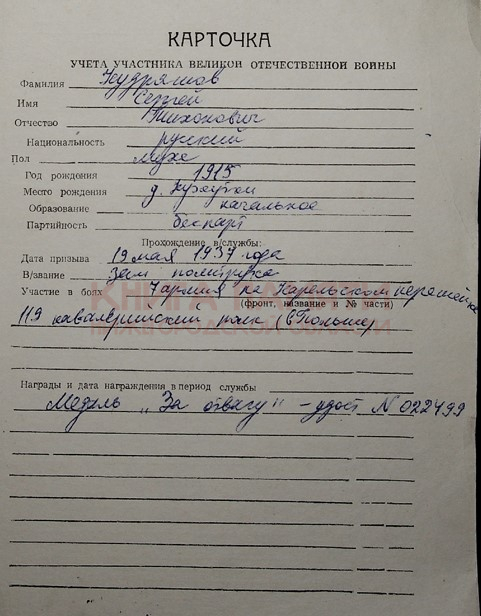 КАРТОЧКА
УЧЕТА УЧАСТНИКА ВЕЛИКОЙ ОТЕЧЕСТВЕННОЙ ВОЙНЫ
Фамилия Кудряшов
Имя Сергей
Отчество Тихонович
Национальность русский
Пол муж
Год рождения 1915
Место рождения д.
Образование начальное
Партийность беспарт
Прохождение в/службы:
Дата призыва 19 мая 1937 года
В/звание зам политрука
Участие в боях 7 армия на Карельском перешейке
(фронт, название и № части)
КНИГА ПАМЯТИ
НИЖЕГОРОДСКОЙ ОБЛАСТИ
119 кавалерийский полк (в Польше)
Награды и дата награждения в период службы
Медаль „За отвагу" - удост N 022499